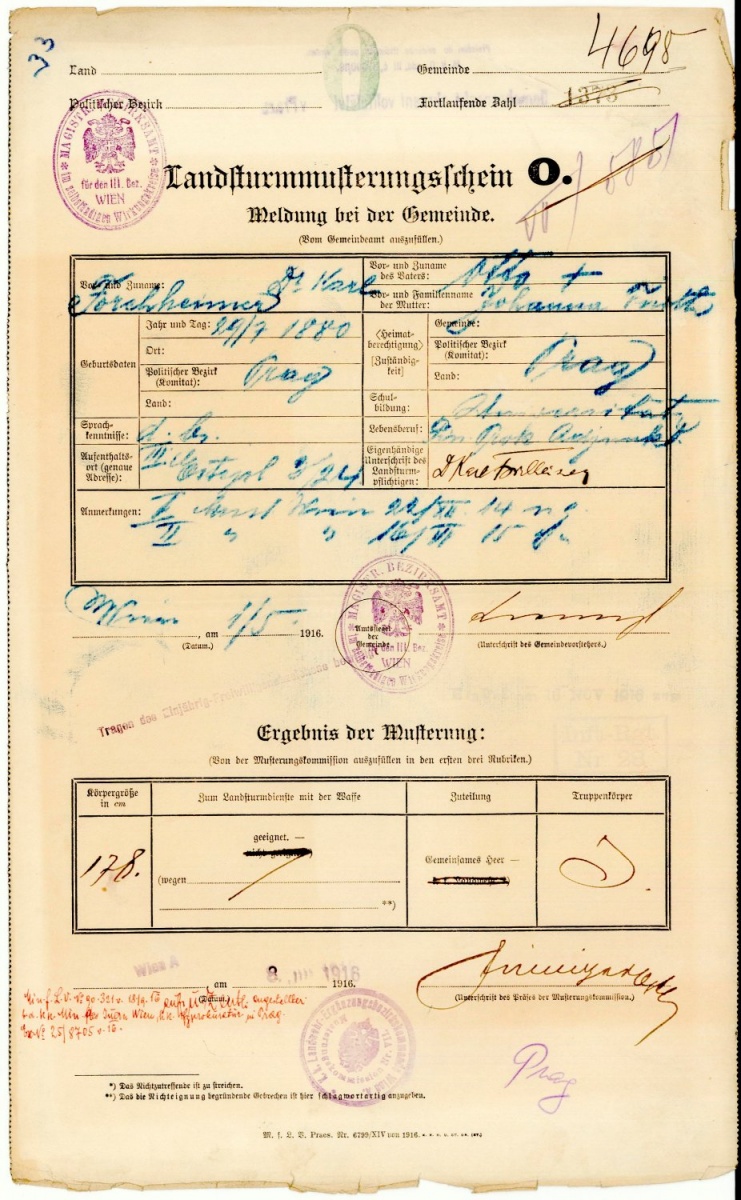 33
4695
Land
Gemeinde
Politischer Bezirk
Fortlaufende Zahl 1373
MAGISTR. BEZIRKSAMT
für den III. Bez.
WIEN
im selbständigen Wirkungskreise
Landsturmmusterungsschein O.
Meldung bei der Gemeinde.
(Vom Gemeindeamt auszufüllen.)
Vor- und Zuname: Dr. Karl
Forchheimer
Vor- und Zuname des Vaters: Otto +
Vor- und Familienname der Mutter: Johanna
Geburtsdaten
Jahr und Tag: 29/7 1880
Ort:
Politischer Bezirk (Komitat): Prag
Land:
(Heimatberechtigung)
[Zuständigkeit]
Gemeinde:
Politischer Bezirk (Komitat): Prag
Land:
Schulbildung: Universität
Sprachkenntnisse: d. bö.
Lebensberuf: Fin. Prok. Adjunkt
Aufenthaltsort (genaue Adresse): III.
Eigenhändige Unterschrift des Landsturmpflichtigen: Dr Karl Forchheimer
Anmerkungen: I Must Wien 22/XII 14 n. g.
II " " 16/VI 15
Wien, am 1/5 1916.
(Datum.)
Amtssiegel der Gemeinde
MAGISTR. BEZIRKSAMT
für den III. Bez.
WIEN
im selbständigen Wirkungskreise
(Unterschrift des Gemeindevorstehers.)
Tragen des Einjährig-Freiwilligen
Ergebnis der Musterung:
(Von der Musterungskommission auszufüllen in den ersten drei Rubriken.)
Körpergröße in cm
Zum Landsturmdienste mit der Waffe
Zuteilung
Truppenkörper
178.
geeignet. —
nicht geeignet*)
(wegen
**)
Gemeinsames Heer —
J.
Wien A
am 3. 1916 1916.
(Datum.)
(Unterschrift des Präses der Musterungskommission.)
Prag
*) Das Nichtzutreffende ist zu streichen.
**) Das die Nichteignung begründende Gebrechen ist hier schlagwortartig anzugeben.
M. f. L. V. Praes. Nr. 6799/XIV von 1916.